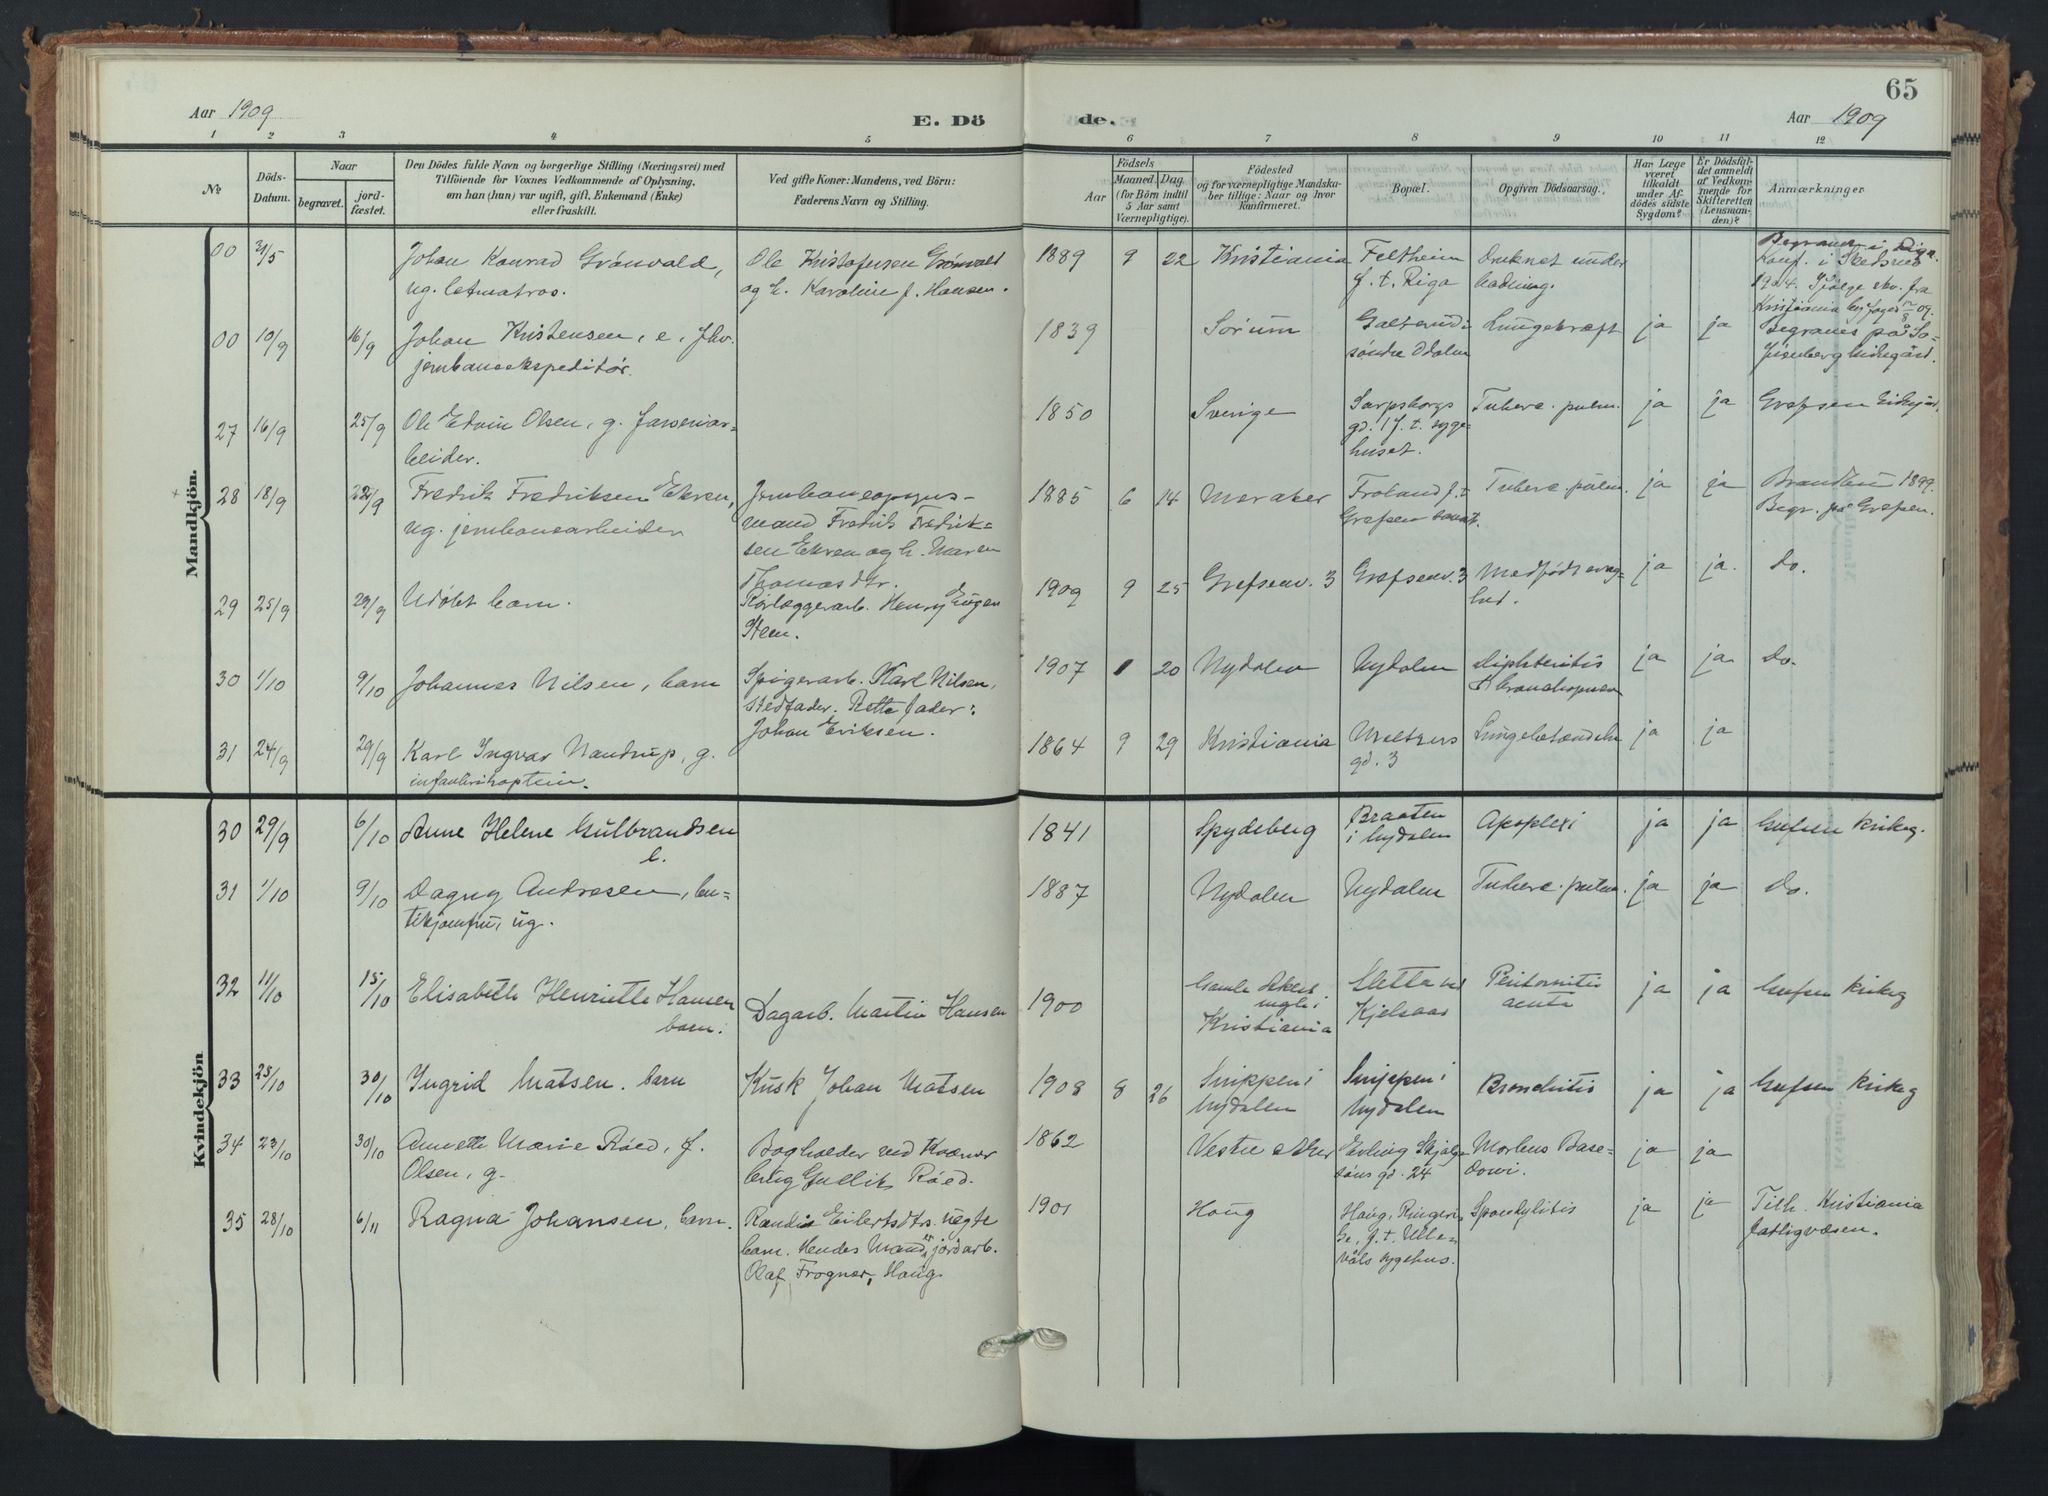 65
Aar 1909
E. Dö
de.
Aar 1909
1 2 3 4 5 6 7 8 9 10 11 12
№
Döds-
Datum.
Naar
begravet.
jord-
fæstet.
Den Dödes fulde Navn og borgerlige Stilling (Næringsvei) med
Tilföiende for Voxnes Vedkommende af Oplysning,
om han (hun) var ugift, gift, Enkemand (Enke)
eller fraskilt.
Ved gifte Koner: Mandens, ved Börn:
Faderens Navn og Stilling.
Aar
Födsels
Maaned. Dag.
(for Börn indtil
5 Aar samt
Værnepligtige).
Födested
og for værnepligtige Mandska-
ber tillige: Naar og hvor
konfirmeret.
Bopæl.
Opgiven Dödsaarsag.
Har Læge
været
tilkaldt
under Af-
dödes sidste
Sygdom?
Er Dödsfal-
det anmeldt
af Vedkom-
mende for
Skifteretten
(Lensman-
den)?
Anmærkninger
Mandkjön.
00 31/5 Johan Konrad Grönvald, Ole Kristofersen Grönvold 1889 9 22 Kristiania Feltheim Druknet under Begravet i Riga.
ug. letmatros. og h. Karoline f. Hansen. f. t. Riga badning. Konf. i Skedsmo
1904.
00 10/9 16/9 Johan Kristensen, e, fhv. 1839 Sørum Galterud i Lungekræft ja ja Begraves på
jernbaneekspeditør. søndre Odalen
27 16/9 25/9 Ole Edvin Olsen, g. farveriar- 1850 Sverige Sarpsborgs Tuberc. pulm. ja ja Grefsen
beider. gd. 1 f. t. syge-
huset.
28 18/9 22/9 Fredrik Fredriksen Ekren, Jernbaneopsyns- 1885 6 14 Meraker Froland f. t Tuberc. pulm. ja ja Brandbu 1899.
ug. jernbanearbeider mand Fredrik Fredrik- Grefsen sanat. Begr. på Grefsen.
sen Ekren og h. Maren
Thomasdtr.
29 25/9 29/9 Udöbt barn. Rørlæggerarb. Henry Eugen 1909 9 25 Grefsenv. 3 Grefsenv. 3 Medfødt svag- ja ja. Do.
Steen. hed.
30 1/10 9/10 Johannes Nilsen, barn Spigerarb. Karl Nilsen, 1907 1 20 Nydalen Nydalen Diphteritis ja ja. Do.
stedfader. Rette fader:
Johan Eriksen.
31 24/9 29/9 Karl Ingvar Nandrup, g. 1864 9 29 Kristiania Meltzers Lungebetændelse ja ja
infanterikaptein. gd. 3
Kvindekjön
30 29/9 6/10 Anne Helene Gulbrandsen 1841 Spydeberg Braaten Apoplexi ja ja Grefsen Kirkeg.
e. i Nydalen
31 1/10 9/10 Dagny Andresen, bu- 1887 Nydalen Nydalen Tuberc. pulm. ja ja Do.
tikjomfru, ug.
32 11/10 15/10 Elisabeth Henriette Hansen Dagarb. Martin Hansen 1900 Gamle Akers Sletta ved Peritonitis ja ja Grefsen Kirkeg
barn. mgh i Kjelsaas acuta
Kristiania
33 25/10 30/10 Ingrid Matsen. barn Kusk Johan Matsen 1908 8 26 Snippen i Snippen i Bronchitis ja ja Grefsen Kirkeg
Nydalen Nydalen
34 23/10 30/10 Annette Marie Röed, f. Bogholder ved Kværner 1862 Vestre Aker Erling Skjalgs- Morbus Base- ja ja
Olsen, g. brug Gullik Röed. söns gd. 24 dowi.
35 28/10 6/11 Ragna Johansen, barn. Randi Eilertsdtrs. uægte 1901 Haug Haug, Ringeri- Spondylitis ja ja Tilh. Kristiania
barn. Hendes Mand er jordarb. ge, f. t. Ulle- fattigvæsen.
Olaf Frogner, Haug. våls sygehus.